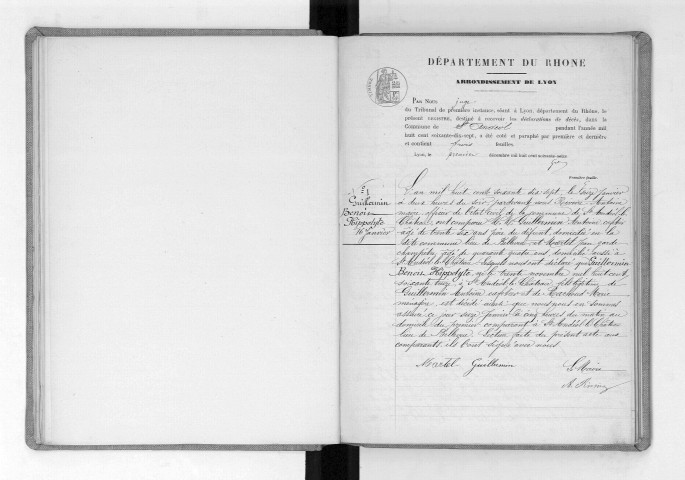 DÉPARTEMENT DU RHONE
ARRONDISSEMENT DE LYON
PAR NOUS juge
du Tribunal de première instance, séant à Lyon, département du Rhône, le
présent registre, destiné à recevoir les déclarations de décès, dans la
Commune de St Andéol pendant l'année mil
huit cent soixante-dix-sept, a été coté et paraphé par première et dernière
et contient feuilles
Lyon, le premier décembre mil huit cent soixante-seize
Première feuille
1
Guillermin
Benoit
Hippolyte
16 Janvier
L'an mil huit cent soixante dix sept le seize janvier
à deux heures du soir pardevant nous Antoine
maire officier de l'état civil de la commune de St Andéol le
Château, ont comparu Guillermin Antoine
âgé de trente six ans père du défunt, domicilié en la
dite commune lieu de Bellevue et Martel garde
champêtre âgé de quarante quatre ans domicilié aussi à
St Andéol le Château lesquels nous ont déclaré que Guillermin
Benoit Hippolyte, né le trente novembre mil huit cent
soixante à St Andéol le Château fils légitime de
Guillermin Antoine et de
ménagère est décédé ainsi que nous nous en sommes
assuré ce jour seize janvier à cinq heures du matin au
domicile du premier comparant à St Andéol le Château
lieu de Bellevue. Lecture faite du présent acte aux
comparants ils l'ont signé avec nous.
Martel Guillermin Le Maire